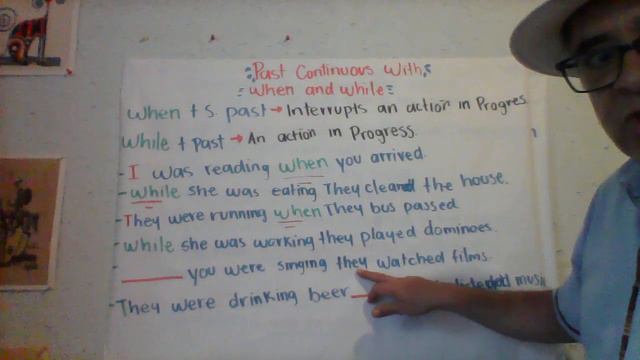 Past Continuous With
When and While
When + S. past → Interrupts an action in Progres
While + past → An action in Progress.
- I was reading when you arrived.
- While she was eating They cleaned the house.
- They were running when They bus passed
- While she was working they played dominoes.
- ______ you were singing they watched films.
- They were drinking beer music